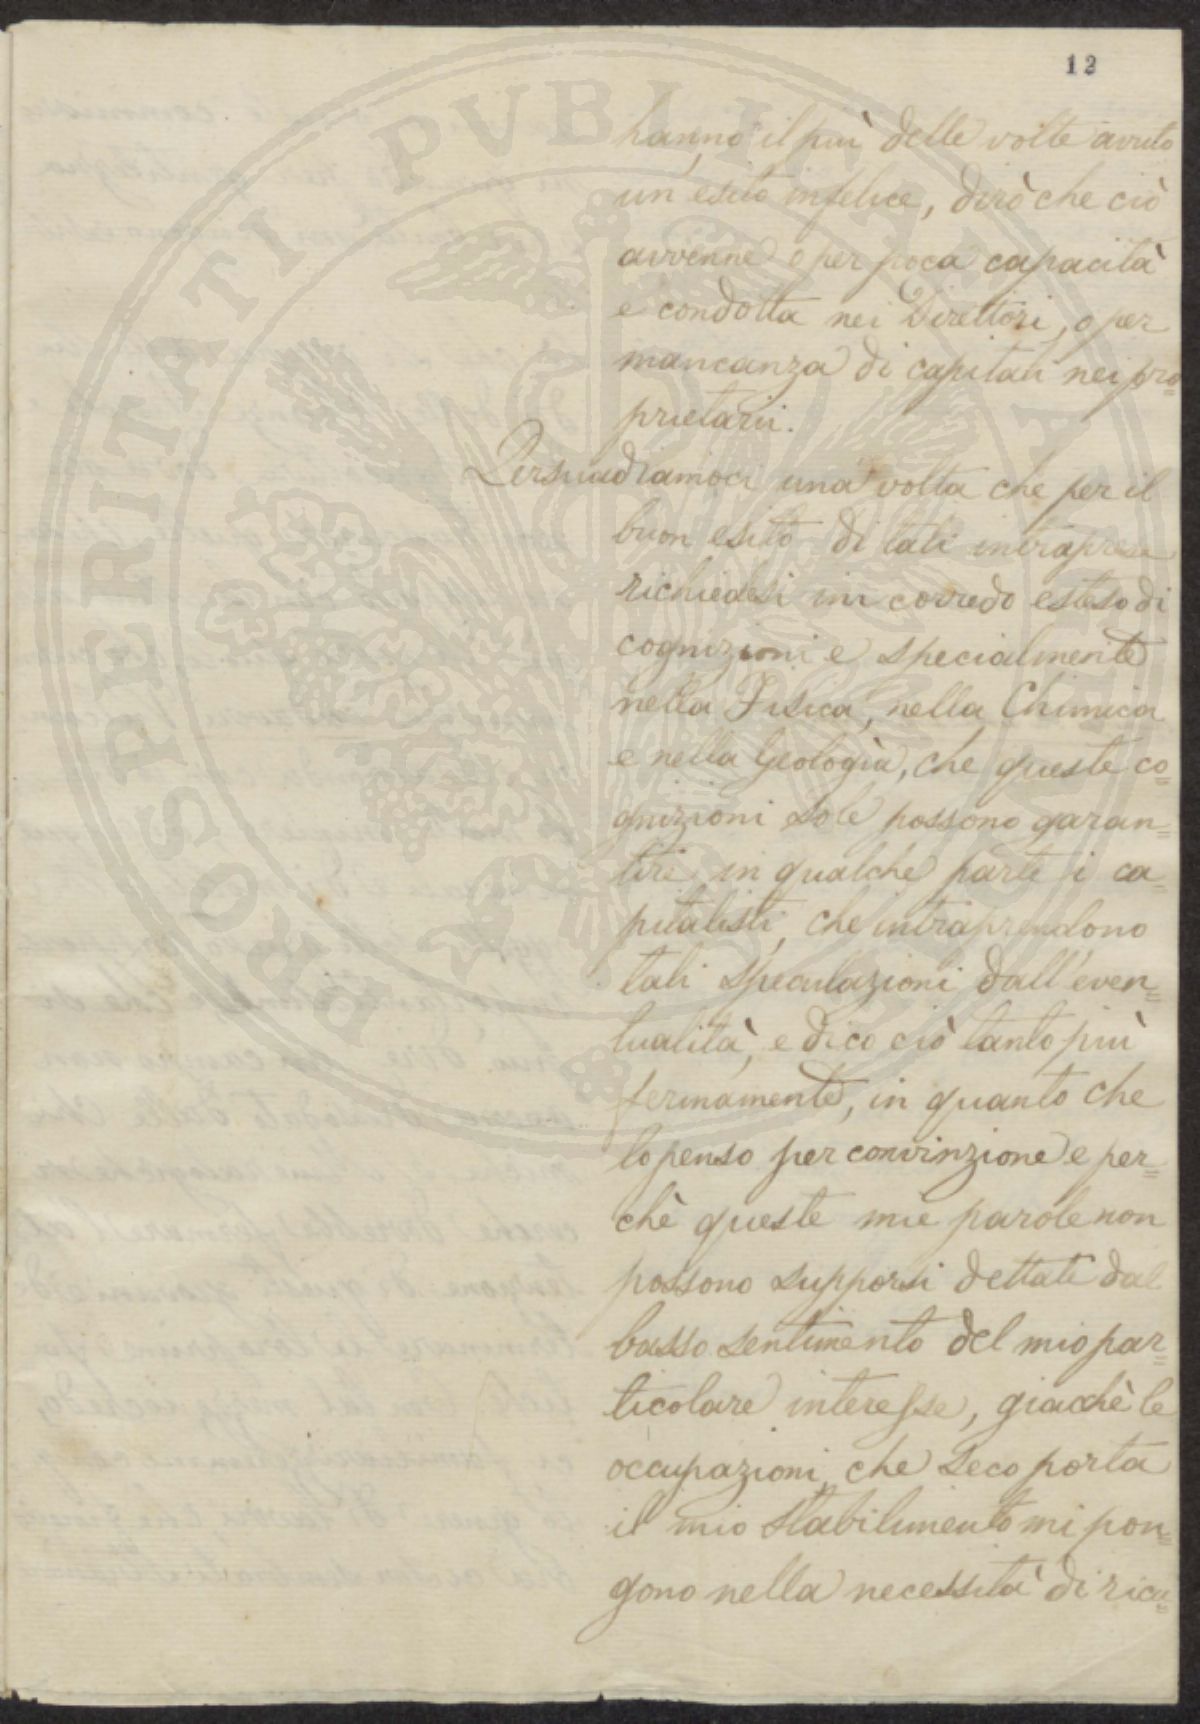 12
PROSPERITATI PVBLICAE
hanno il più delle volte avuto
un esito infelice, dirò che ciò
avvenne o per poca capacità
e condotta nei Direttori, o per
mancanza di capitali nei pro=
prietarii.
Persuadiamoci una volta che per il
buon esito di tali intraprese
richiedesi un corredo esteso di
cognizioni e specialmente
nella Fisica, nella Chimica
e nella Geologia, che queste co=
gnizioni sole possono garan=
tire in qualche parte i ca=
pitalisti, che intraprendono
tali speculazioni dall'even=
tualità, e dico ciò tanto più
fermamente, in quanto che
lo penso per convinzione e per=
chè queste mie parole non
possono supporsi dettate dal
basso sentimento del mio par=
ticolare interesse, giacchè le
occupazioni, che seco porta
il mio stabilimento mi pon=
gono nella necessità di ricu=